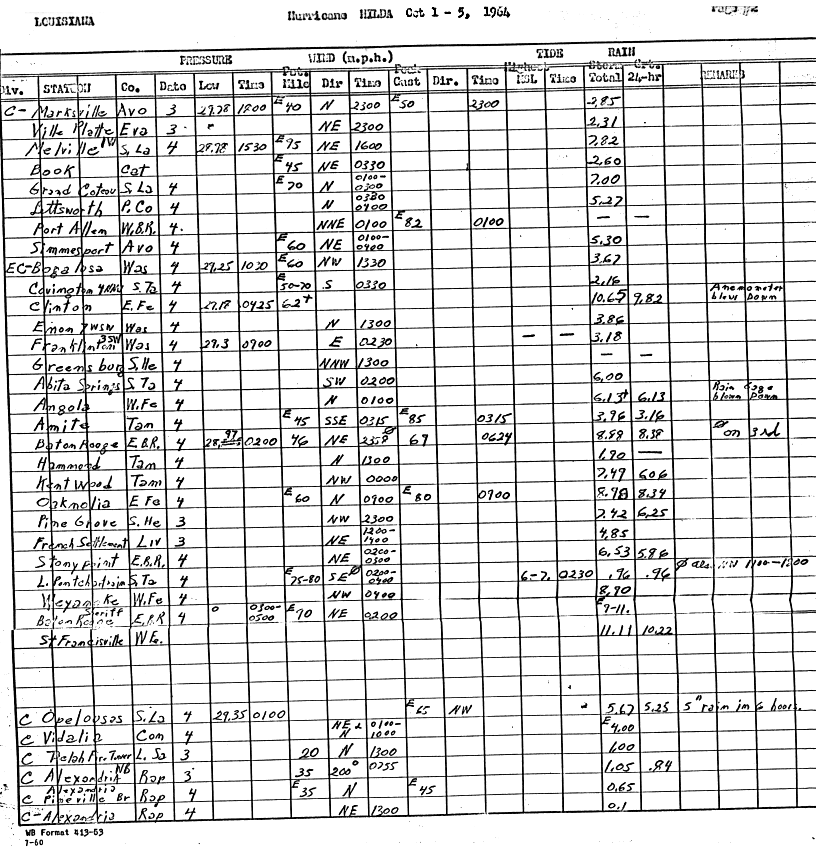 LOUISIANA Hurricane HILDA Oct 1 - 5, 1964
PRESSURE WIND (m.p.h.) TIDE RAIN
Div. STATION Co. Date Low Time Mile Dir Time Gust Dir. Time Highest MSL Time Storm Total 24-hr REMARKS
C- Marksville Avo 3 29.78 1800 E40 N 2300 E50 2300 2.85
Ville Platte Eva 3 NE 2300 2.31
Melville 1W S. La 4 29.78 1530 E75 NE 1600 7.82
Book Cat E45 NE 0330 2.60
Grand Coteau S. La 4 E70 N 0100-0300 7.00
Lottsworth P. Co 4 N 0900 5.27
Port Allen W.B.R. 4 NNE 0100 E82 0100 — —
Simmesport Avo 4 E60 NE 0100-0400 5.30
EC-Bogalosa Was 4 29.25 1030 E60 NW 1330 3.67
Covington 4NNW S. Ta 50-70 S 0330 2.16
Clinton E. Fe 4 0425 62+ 10.65 9.82 Anemometer blew Down
Enon 7WSW Was 4 N 1300 3.86
Franklinton 3SW Was 4 29.3 0900 E 0230 — — 3.18
Greensburg S. He 4 NNW 1300 — —
Abita Springs S. Ta 4 SW 0200 6.00
Angola W. Fe 4 N 0100 6.13+ 6.13 Rain Gage blown Down
Amite Tan 4 E45 SSE 0315 E85 0315 3.96 3.16
Baton Rooge E.B.R. 4 0200 46 NE 2358ø 67 0624 8.98 8.38 ø on 3rd
Hammond Tam 4 N 1300 1.90 —
Kentwood Tam 4 NW 0000 7.49 6.06
Oaknolia E Fe 4 E60 N 0900 E80 0900 8.98 8.34
Pine Grove S. He 3 NW 2300 7.42 6.25
French Settlement Liv 3 NE 1200-1400 4.85
Stony point E.B.R. 4 NE 0200-0500 6.53 5.96
L. Pontchartrain S. Ta 4 E75-80 SEø 0200-0400 6-7. 0230 .96 .96 ø also NW 1100-1200
Weyanoke W. Fe 4 NW 0400 8.90
Baton Rouge Sheriff E.B.R 4 0300-0500 E70 NE 0200 E9-11.
St Francisville W Fe. 11.11 10.22
C Opelousas S. La 4 29.35 0100 E65 NW 5.67 5.25 5" rain in 6 hours.
C Vidalia Con 4 NE & N 0100-1000 E4.00
C Fire Tower L. Sa 3 20 N 1300 1.00
C Alexandria NB Rap 3 35 200° 0255 1.05 .84
C Alexandria Pineville Br Rap 4 E35 N E45 0.65
C- Alexandria Rap 4 NE 1300 0.1
WB Format 413-63
7-60